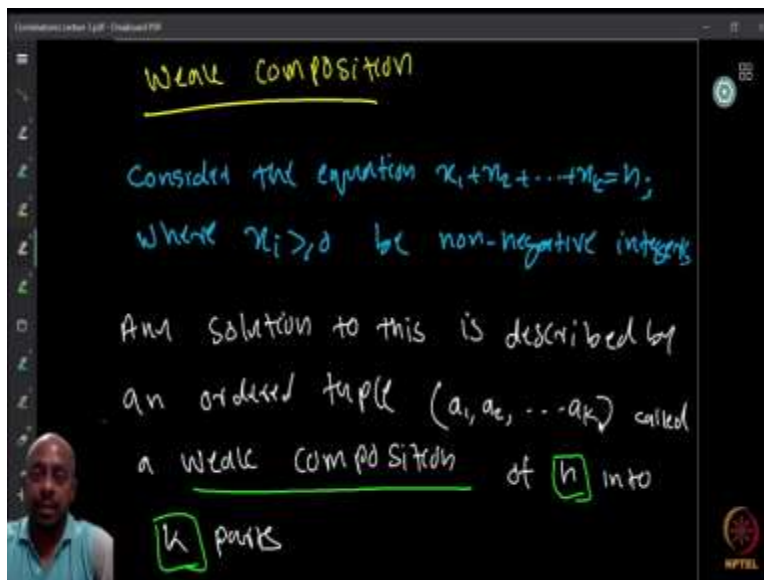 Weak Composition
Consider the equation x₁+x₂+⋯+xₖ=n;
where xᵢ≥0 be non-negative integers
Any solution to this is described by
an ordered tuple (a₁, a₂, ⋯aₖ) called
a weak composition of n into
k parts
NPTEL